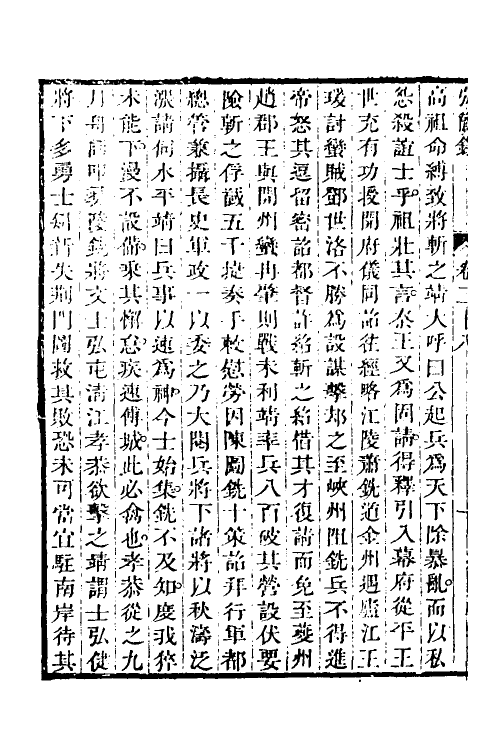 高祖命縛致將斬之靖大呼曰公起兵為天下除暴亂而以私
怨殺誼士乎祖壯其言秦王又為固請得釋引入幕府從平王
世充有功授開府儀同詔往經略江陵蕭銑道金州遇廬江王
瑗討蠻賊鄧世洛不勝為設謀擊却之至峽州阻銑兵不得進
帝怒其逗留密詔都督許紹斬之紹惜其才復請而免至夔州
趙郡王與開州蠻冉肇則戰未利靖率兵八百破其營設伏要
險斬之俘馘五千捷奏手敕慰勞因陳圖銑十策詔拜行軍都
總管兼攝長史軍政一以委之乃大閱兵將下諸將以秋濤泛
漲請俟水平靖曰兵事以速為神今士始集銑不及知度我猝
未能下漫不設備乘其懈怠疾速傅城此必禽也孝恭從之九
月舟師叩夷陵銑將文士弘屯清江孝恭欲擊之靖謂士弘健
將下多勇士新失荆門闔救其敗恐未可當宜駐南岸待其